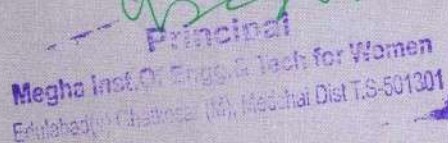 Principal
Megha Inst.Of Engg.& Tech for Women
Edulabad(V) Ghatkesar (M), Medchal Dist T.S-501301